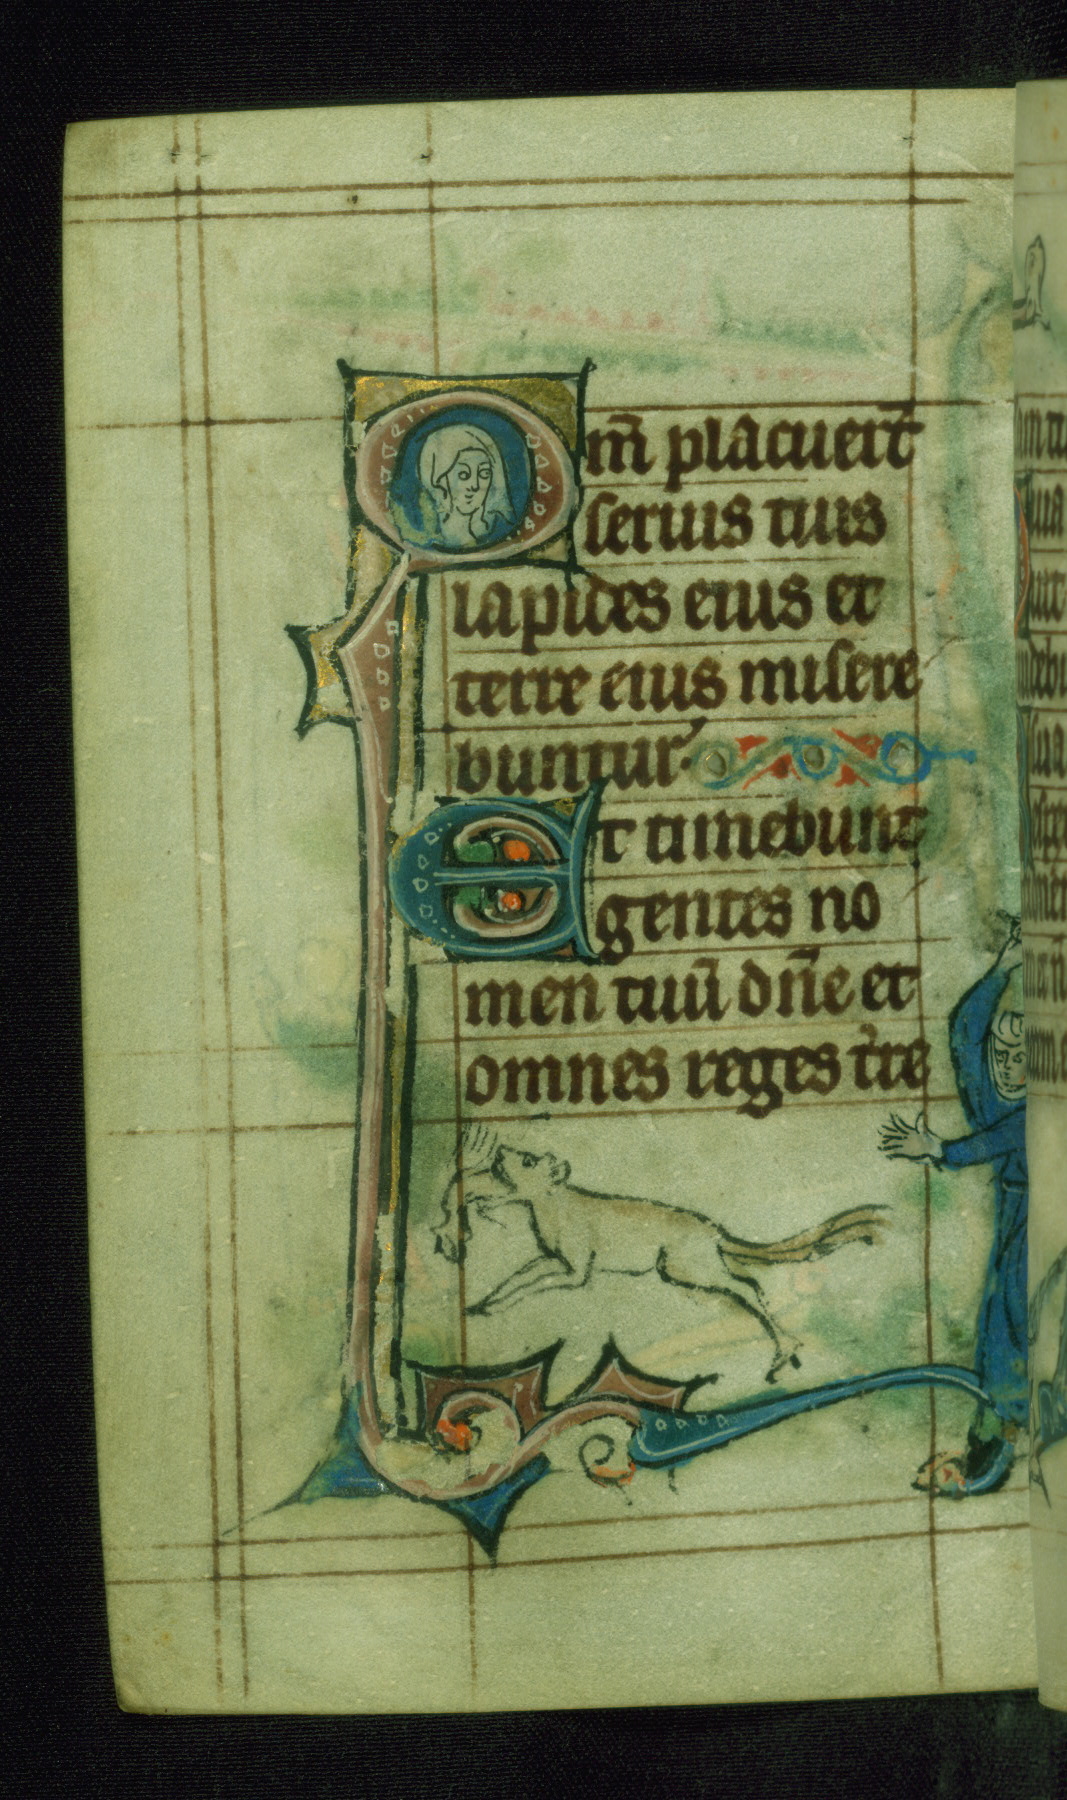 Qm̅ placuerū̅t
seruis tuis
lapides eius et
terre eius misere
buntur.
Et timebunt
gentes no
men tuū dn̄e et
omnes reges tr̄e